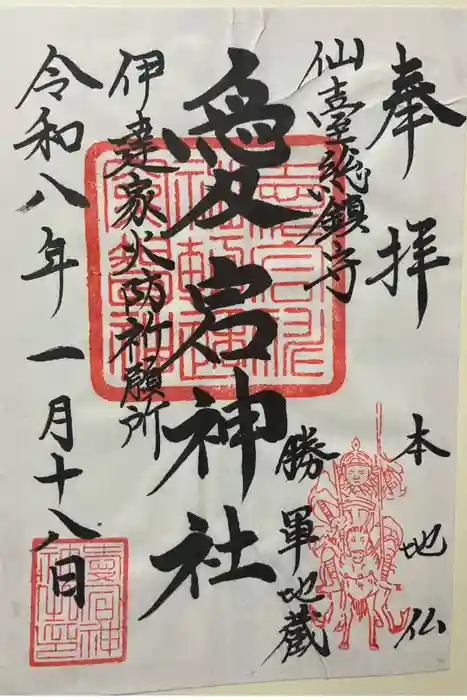 奉拝
本地仏
仙臺総鎮守
勝軍地蔵
愛宕神社
伊達家火防祈願所
令和八年一月十八日